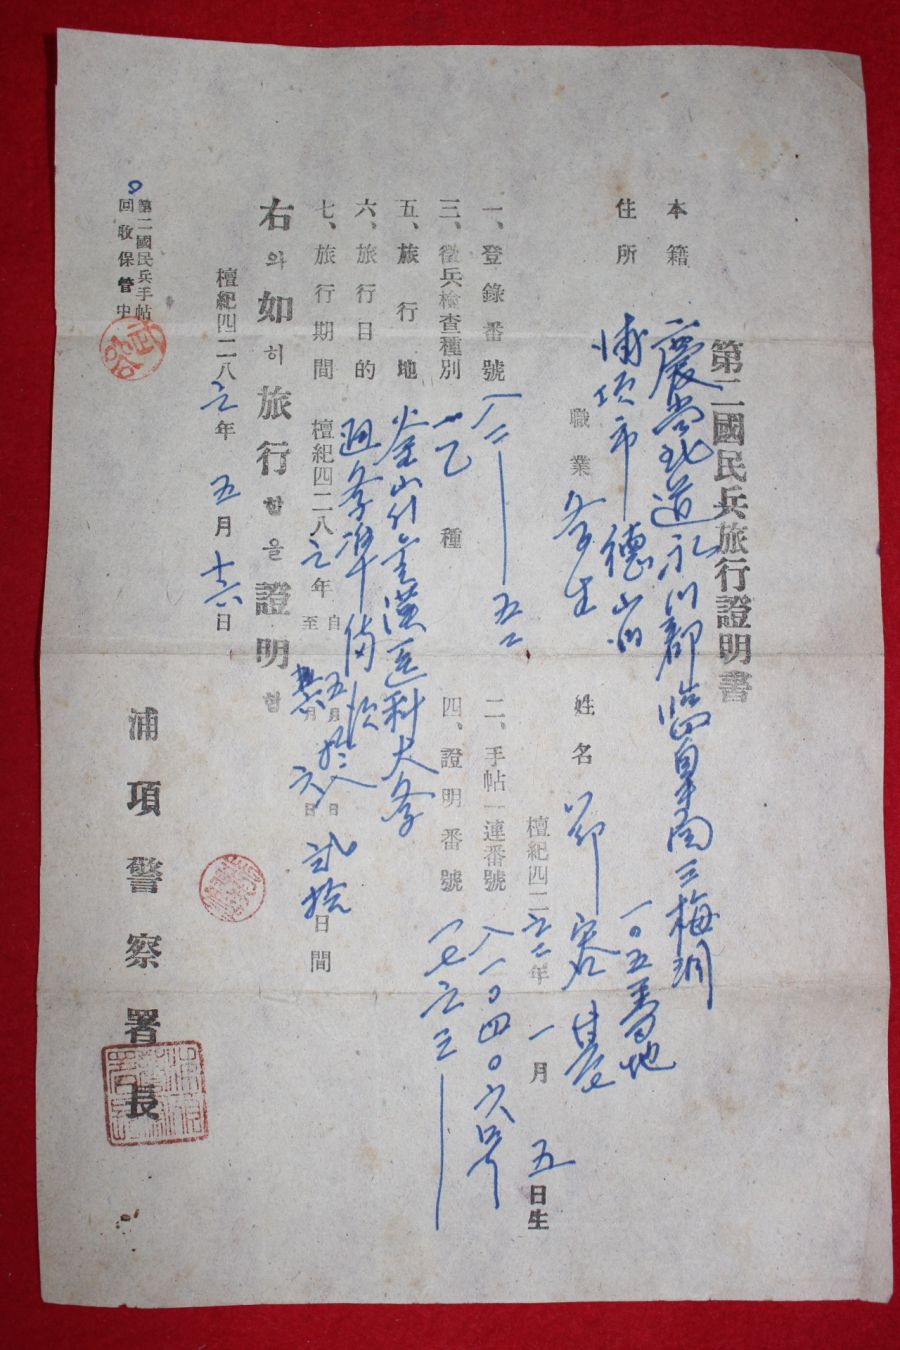 第二國民兵旅行證明書
本籍 慶尚北道永川郡臨皐面三梅洞
一〇五番地
住所 浦項市德山洞
職業 學生 姓名 鄭容
檀紀四二六二年 一月 五日生
一、登錄番號 一八二一五二
二、手帖一連番號 八一〇四〇六号
三、徵兵檢查種別 一乙種
四、證明番號 一七六三
五、旅行地 釜山市 漢医科大學
六、旅行目的 通學準備次
七、旅行期間 檀紀四二八六年 自 五月 拾八日
至 月 六日 弐拾日間
右와如히旅行함을證明함
檀紀四二八六年 五月 十六日
浦項警察署長
第二國民兵手帖
回收保管中